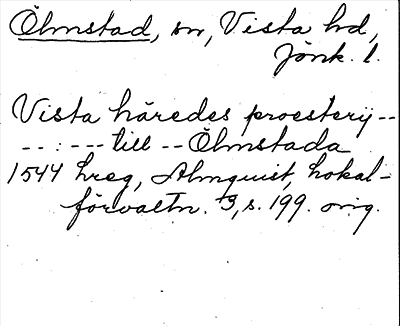 Ölmstad, sn, Vista hd,
Jönk. l.
Vista häredes proesterij --
-- : --- till -- Ölmstada
1544 hreg, Almquist, Lokal-
förvaltn. 3, s. 199. orig.